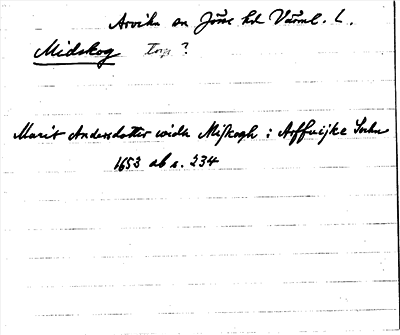 Arvika sn Jösse hd Värml. l.
Midskog Torp ?
Marit Andersdotter widh Miskogh : Arffwijke Sochn
1653 db s. 234